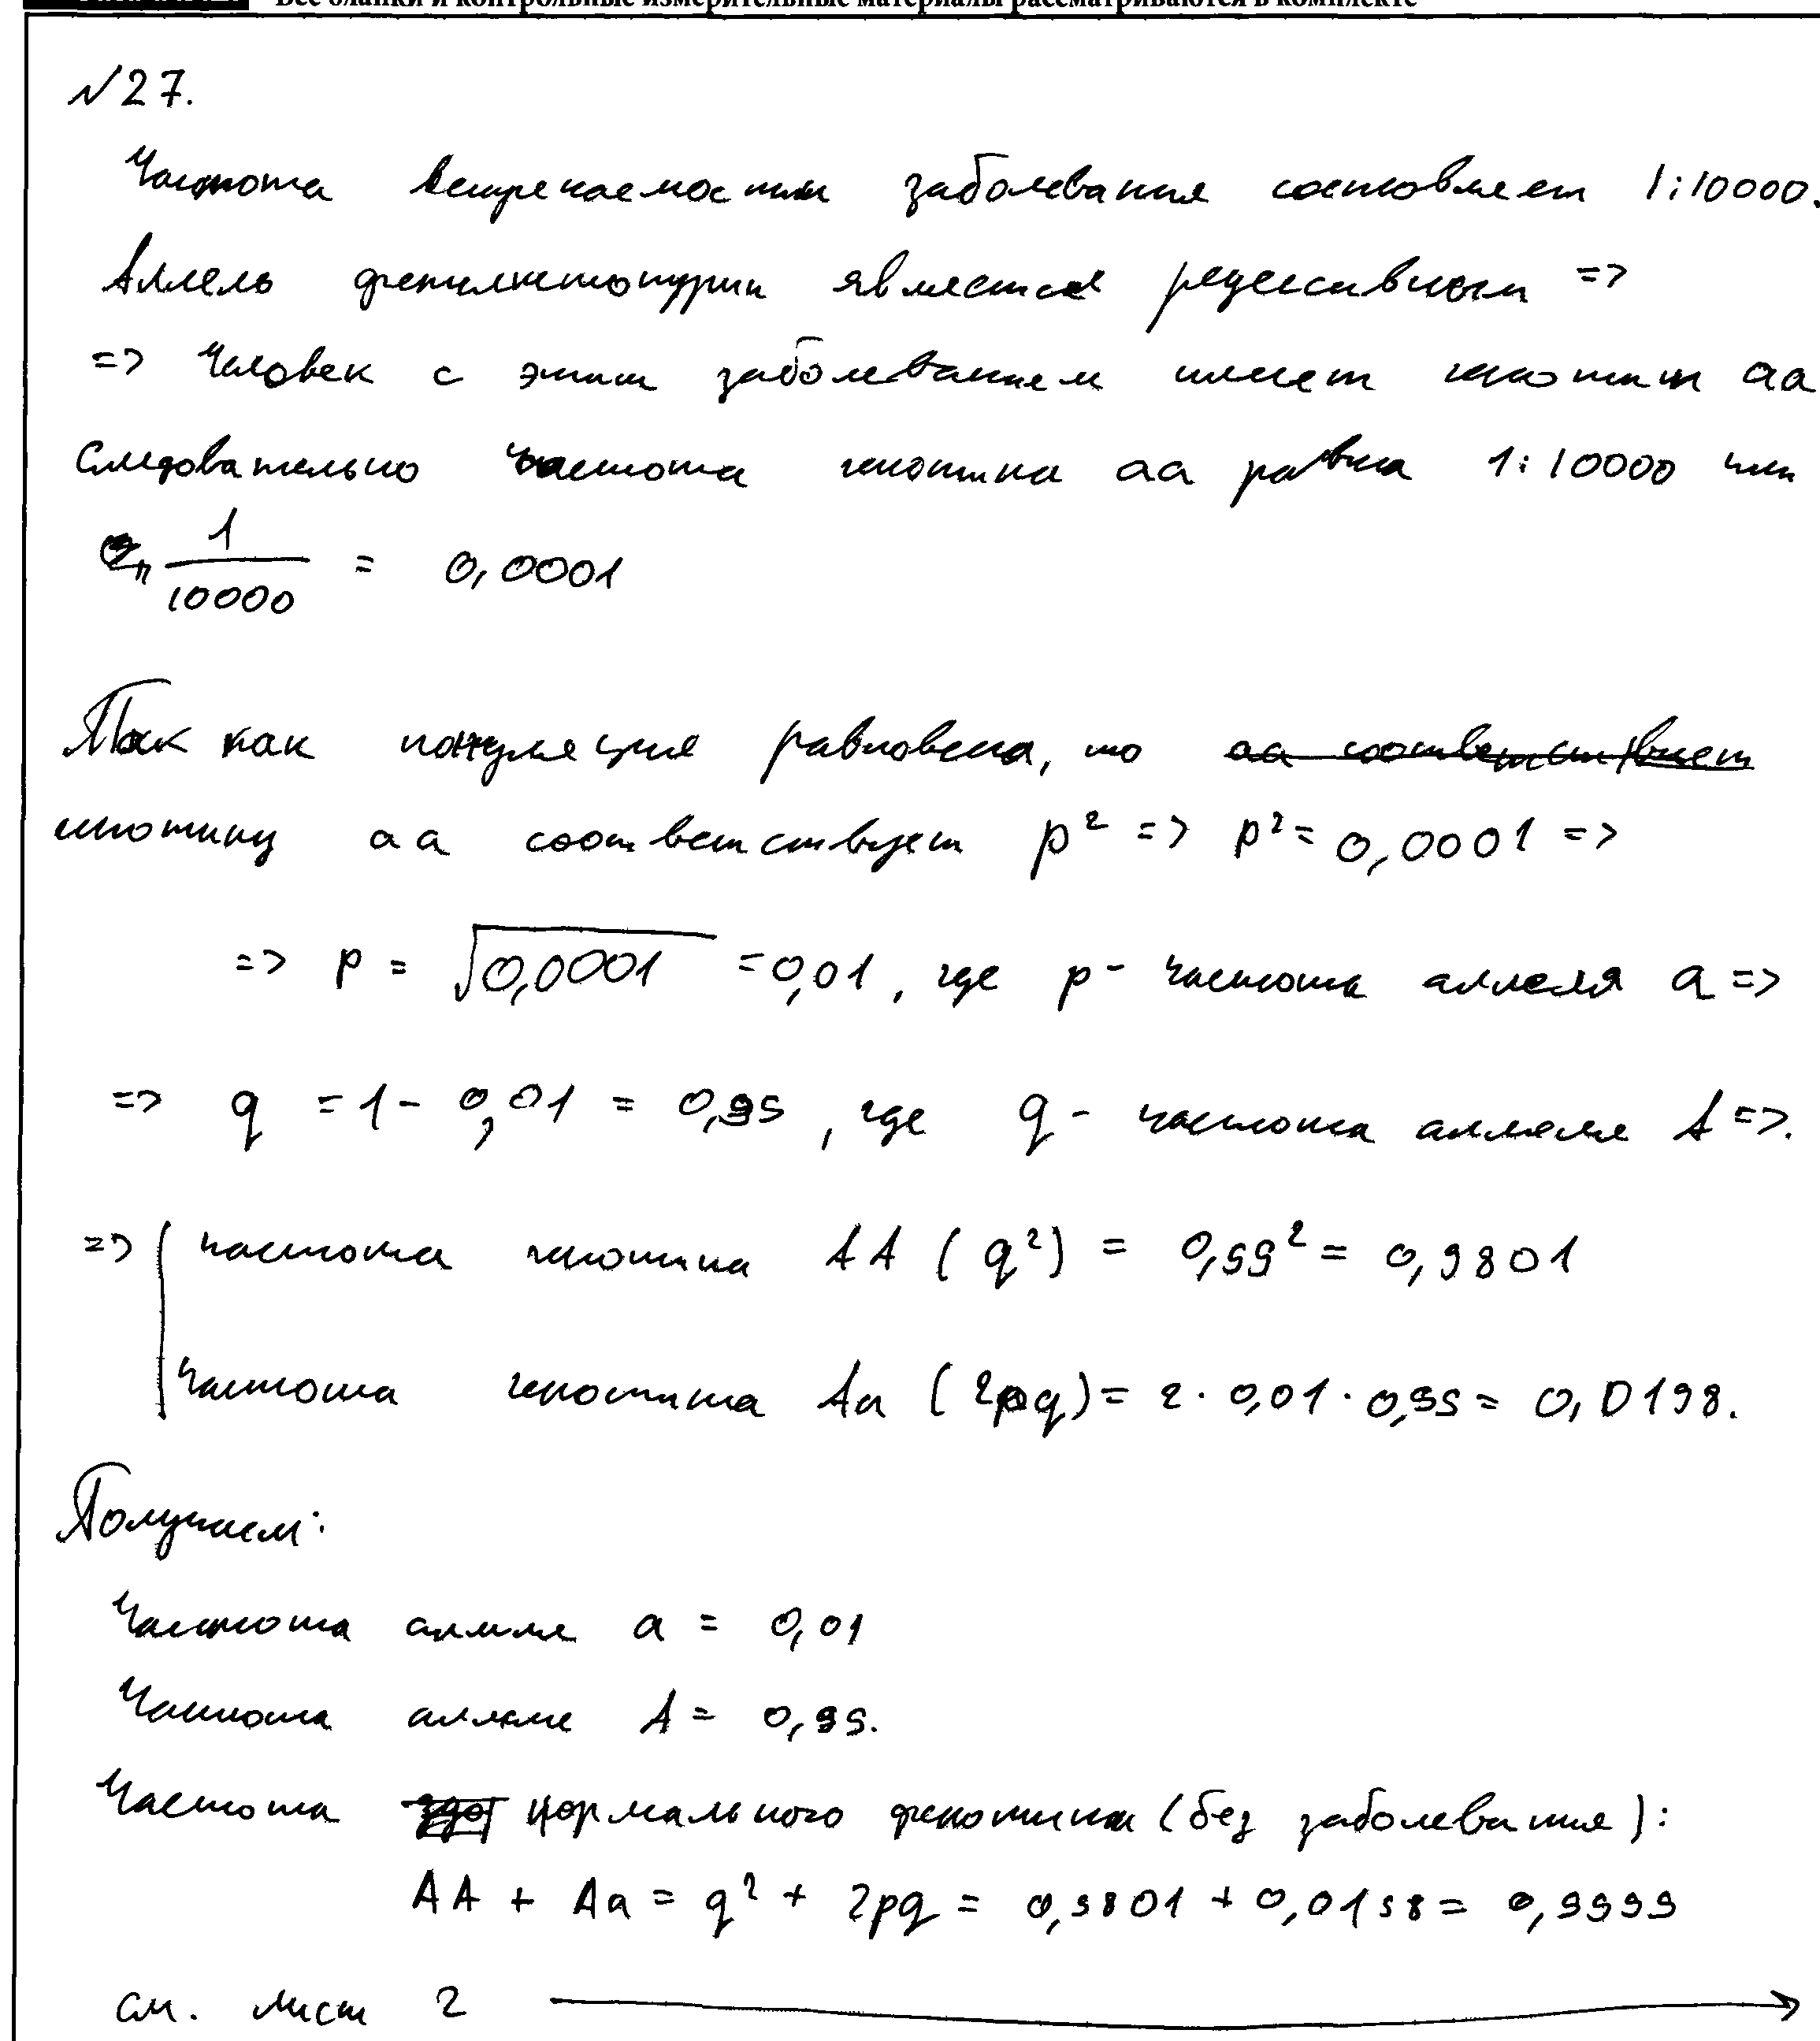 Все бланки и контрольные измерительные материалы рассматриваются в комплекте
№27.
Частота встречаемости заболевания составляет 1:10000.
Аллель фенилкетонурии является рецессивным =>
=> Человек с этим заболеванием имеет генотип aa
Следовательно частота генотипа aa равна 1:10000 или
1/10000 = 0,0001
Так как популяция равновесна, то аа соответствует
генотипу aa соответствует p² => p² = 0,0001 =>
=> p = √0,0001 = 0,01, где p - частота аллеля a =>
=> q = 1 - 0,01 = 0,99, где q - частота аллеля A =>.
=> частота генотипа AA (q²) = 0,99² = 0,9801
частота генотипа Aa (2pq) = 2 · 0,01 · 0,99 = 0,0198.
Получаем:
Частота аллеля a = 0,01
Частота аллеля A = 0,99.
Частота нормального фенотипа (без заболевания):
AA + Aa = q² + 2pq = 0,9801 + 0,0198 = 0,9999
см. лист 2